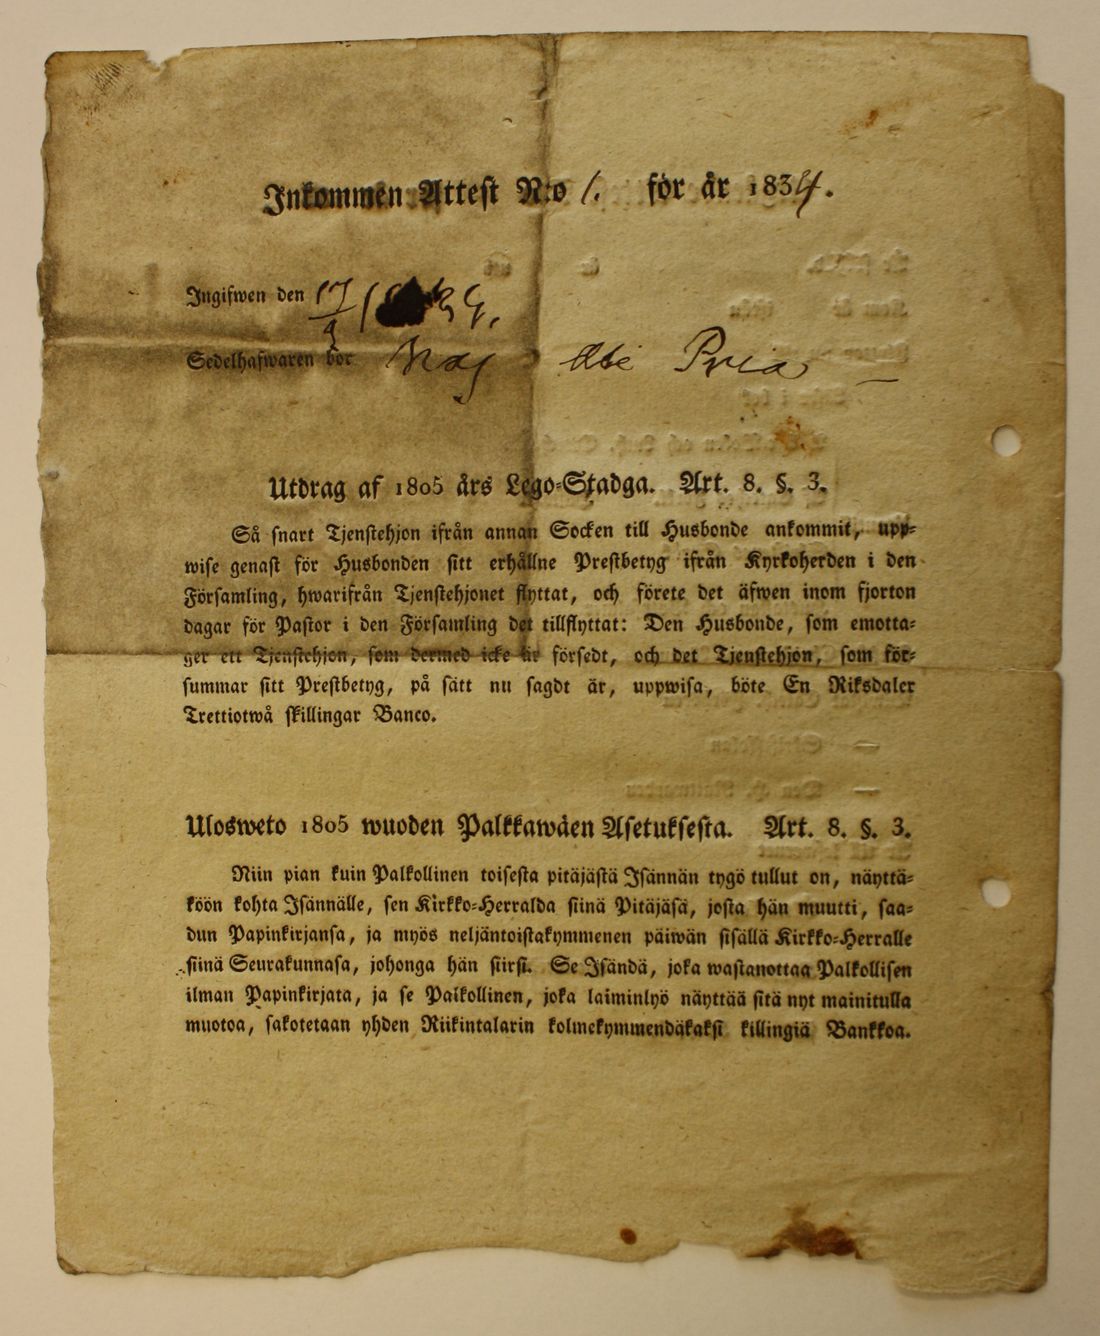 Inkommen Attest N:o 1. för år 1834.
Ingifwen den 17/9
Sedelhafwaren bor
Utdrag af 1805 års Lego-Stadga. Art. 8. §. 3.
Så snart Tjenstehjon ifrån annan Socken till Husbonde ankommit, upp-
wise genast för Husbonden sitt erhållne Prestbetyg ifrån Kyrkoherden i den
Församling, hwarifrån Tjenstehjonet flyttat, och förete det äfwen inom fjorton
dagar för Pastor i den Församling det tillflyttat: Den Husbonde, som emotta-
ger ett Tjenstehjon, som dermed icke är försedt, och det Tjenstehjon, som för-
summar sitt Prestbetyg, på sätt nu sagdt är, uppwisa, böte En Riksdaler
Trettiotwå skillingar Banco.
Ulosweto 1805 wuoden Palkkawäen Asetuksesta. Art. 8. §. 3.
Niin pian kuin Palkollinen toisesta pitäjästä Isännän tygö tullut on, näyttä-
köön kohta Isännälle, sen Kirkko-Herralda siinä Pitäjäsä, josta hän muutti, saa-
dun Papinkirjansa, ja myös neljäntoistakymmenen päiwän sisällä Kirkko-Herralle
siinä Seurakunnasa, johonga hän siirsi. Se Isändä, joka wastanottaa Palkollisen
ilman Papinkirjata, ja se Palkollinen, joka laiminlyö näyttää sitä nyt mainitulla
muotoa, sakotetaan yhden Riikintalarin kolmekymmendäkaksi killingiä Bankkoa.